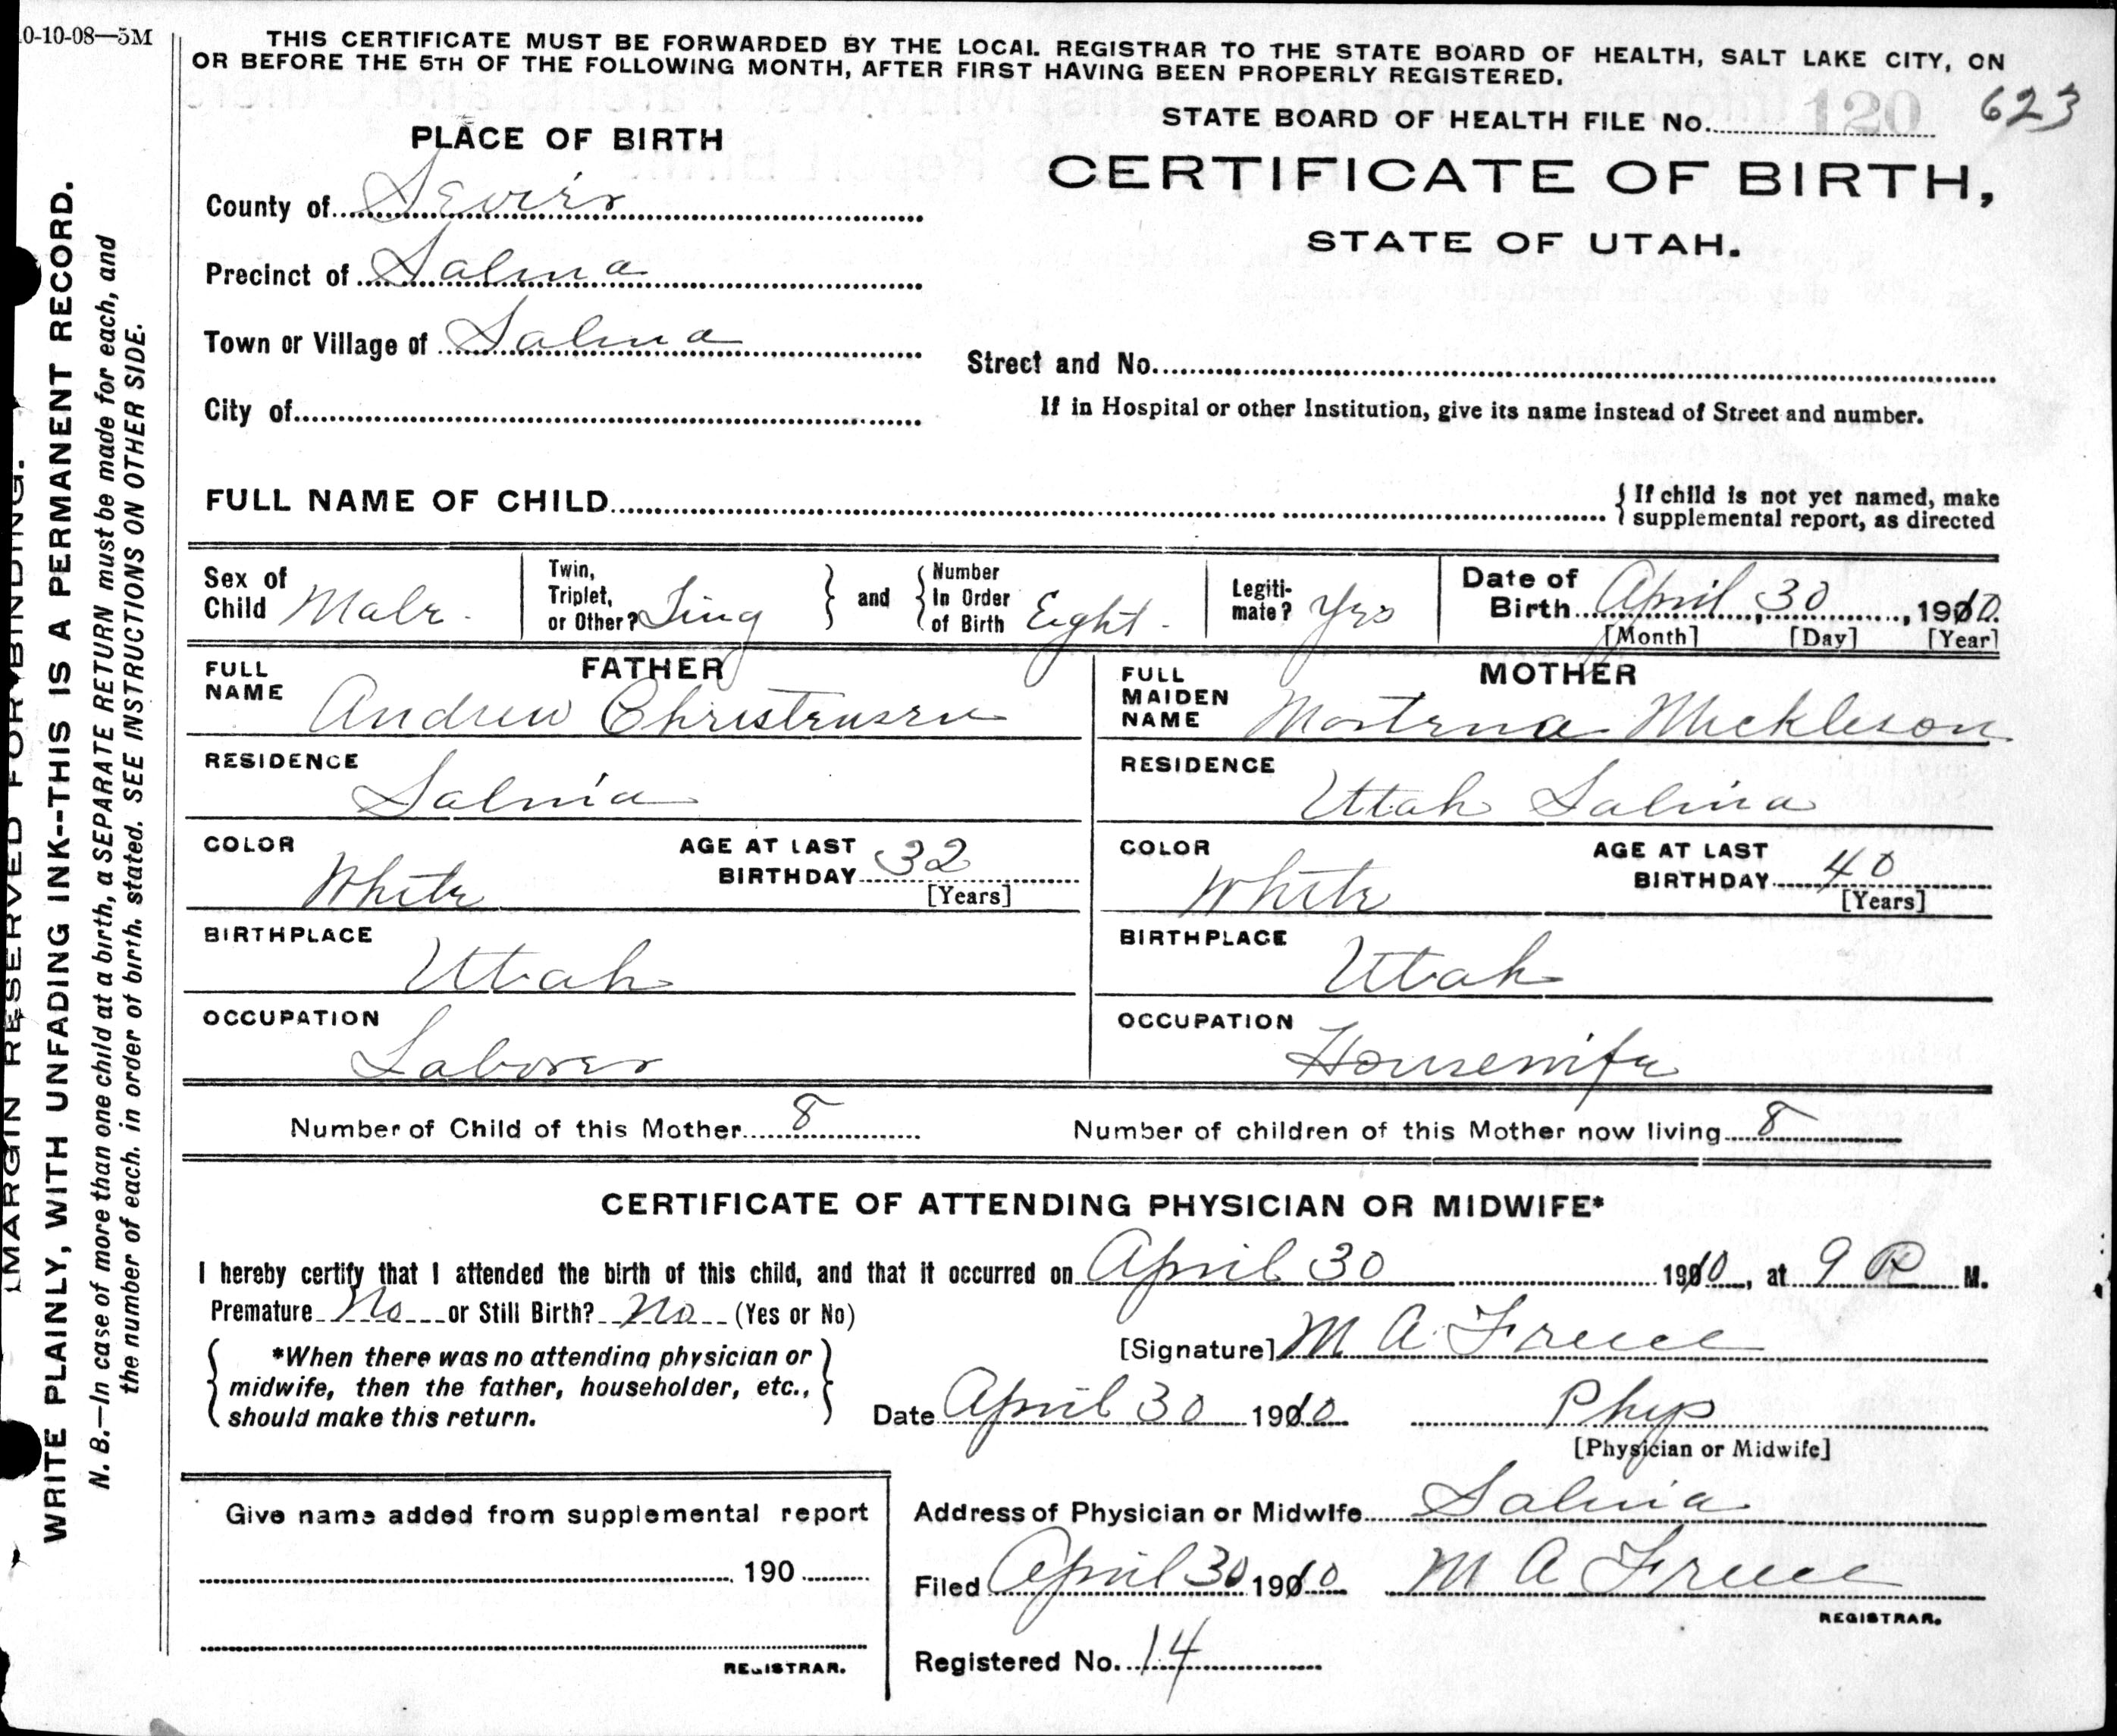 0-10-08—5M
THIS CERTIFICATE MUST BE FORWARDED BY THE LOCAL REGISTRAR TO THE STATE BOARD OF HEALTH, SALT LAKE CITY, ON
OR BEFORE THE 5TH OF THE FOLLOWING MONTH, AFTER FIRST HAVING BEEN PROPERLY REGISTERED.
STATE BOARD OF HEALTH FILE No. 120 623
PLACE OF BIRTH
CERTIFICATE OF BIRTH,
STATE OF UTAH.
County of Sevier
Precinct of Salina
Town or Village of Salina
Street and No.
City of
If in Hospital or other Institution, give its name instead of Street and number.
FULL NAME OF CHILD
{ If child is not yet named, make
supplemental report, as directed
Sex of Child Male.
Twin, Triplet, or Other? Sing } and { Number In Order of Birth Eight.
Legiti-mate? Yes
Date of Birth April, 30, 1910.
[Month] [Day] [Year]
FATHER
FULL NAME Andrew Christensen
RESIDENCE Salina
COLOR White AGE AT LAST BIRTHDAY 32
[Years]
BIRTHPLACE Utah
OCCUPATION Laborer
MOTHER
FULL MAIDEN NAME Mickleson
RESIDENCE Utah Salina
COLOR White AGE AT LAST BIRTHDAY 40
[Years]
BIRTHPLACE Utah
OCCUPATION Housewife
Number of Child of this Mother 8 Number of children of this Mother now living 8
CERTIFICATE OF ATTENDING PHYSICIAN OR MIDWIFE*
I hereby certify that I attended the birth of this child, and that it occurred on April 30 1910, at 9 P M.
Premature No or Still Birth? No (Yes or No)
*When there was no attending physician or
midwife, then the father, householder, etc.,
should make this return.
[Signature] M A
Date April 30 1910 Phys
[Physician or Midwife]
Give name added from supplemental report
190
REGISTRAR.
Address of Physician or Midwife Salina
Filed April 30 1910 M A
REGISTRAR.
Registered No. 14
MARGIN RESERVED FOR BINDING.
WRITE PLAINLY, WITH UNFADING INK--THIS IS A PERMANENT RECORD.
N. B.—In case of more than one child at a birth, a SEPARATE RETURN must be made for each, and
the number of each. in order of birth. stated. SEE INSTRUCTIONS ON OTHER SIDE.